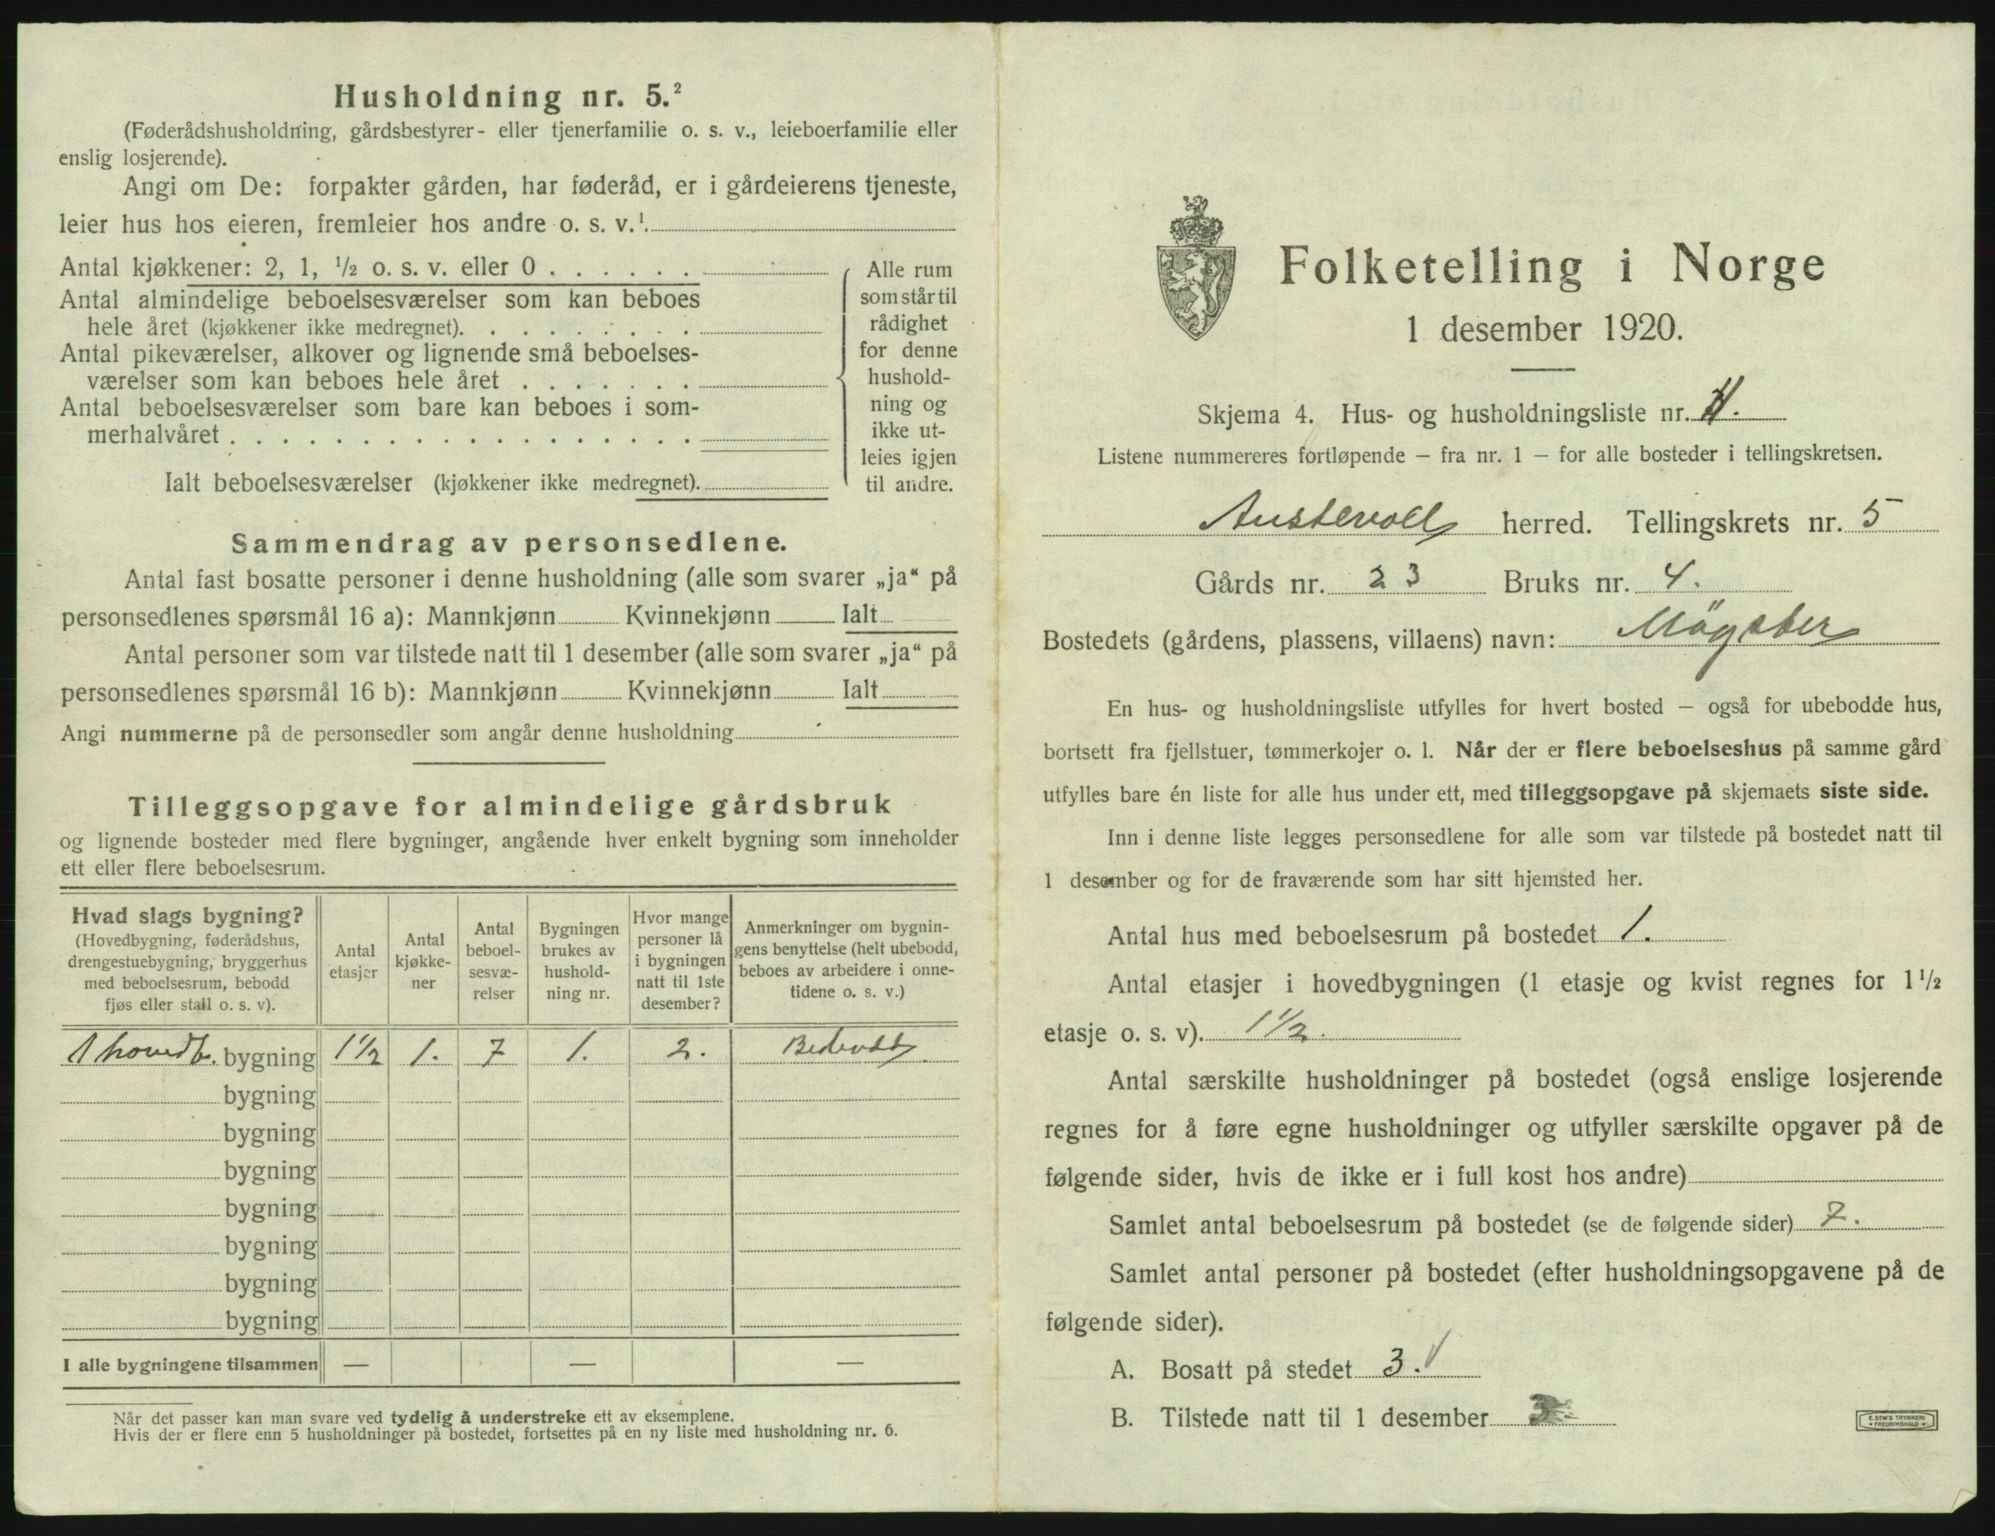 Husholdning nr. 5.²
(Føderådshusholdning, gårdsbestyrer- eller tjenerfamilie o. s. v., leieboerfamilie eller
enslig losjerende).
Angi om De: forpakter gården, har føderåd, er i gårdeierens tjeneste,
leier hus hos eieren, fremleier hos andre o. s. v.¹
Antal kjøkkener: 2, 1, ½ o. s. v. eller 0 . . . . . .
Antal almindelige beboelsesværelser som kan beboes
hele året (kjøkkener ikke medregnet). . . . . . . . .
Antal pikeværelser, alkover og lignende små beboelses-
værelser som kan beboes hele året . . . . . . .
Antal beboelsesværelser som bare kan beboes i som-
merhalvåret . . . . . . . . . . . . . . . . . .
Ialt beboelsesværelser (kjøkkener ikke medregnet).
Alle rum
som står til
rådighet
for denne
hushold-
ning og
ikke ut-
leies igjen
til andre.
Sammendrag av personsedlene.
Antal fast bosatte personer i denne husholdning (alle som svarer „ja“ på
personsedlenes spørsmål 16 a): Mannkjønn Kvinnekjønn Ialt
Antal personer som var tilstede natt til 1 desember (alle som svarer „ja“ på
personsedlenes spørsmål 16 b): Mannkjønn Kvinnekjønn Ialt
Angi nummerne på de personsedler som angår denne husholdning
Tilleggsopgave for almindelige gårdsbruk
og lignende bosteder med flere bygninger, angående hver enkelt bygning som inneholder
ett eller flere beboelsesrum.
Hvad slags bygning?
(Hovedbygning, føderådshus,
drengestuebygning, bryggerhus
med beboelsesrum, bebodd
fjøs eller stall o. s. v).
Antal
etasjer
Antal
kjøkke-
ner
Antal
beboel-
sesvæ-
relser
Bygningen
brukes av
hushold-
ning nr.
Hvor mange
personer lå
i bygningen
natt til 1ste
desember?
Anmerkninger om bygnin-
gens benyttelse (helt ubebodd,
beboes av arbeidere i onne-
tidene o. s. v.)
1 hovedb. bygning 1½ 1. 7 1. 2. Bebodd
bygning
bygning
bygning
bygning
bygning
bygning
bygning
I alle bygningene tilsammen — — —
Når det passer kan man svare ved tydelig å understreke ett av eksemplene.
Hvis der er flere enn 5 husholdninger på bostedet, fortsettes på en ny liste med husholdning nr. 6.
Folketelling i Norge
1 desember 1920.
Skjema 4. Hus- og husholdningsliste nr.
Listene nummereres fortløpende – fra nr. 1 – for alle bosteder i tellingskretsen.
Austevoll herred. Tellingskrets nr. 5
Gårds nr. 23 Bruks nr. 4.
Bostedets (gårdens, plassens, villaens) navn: Mögster
En hus- og husholdningsliste utfylles for hvert bosted – også for ubebodde hus,
bortsett fra fjellstuer, tømmerkojer o. l. Når der er flere beboelseshus på samme gård
utfylles bare én liste for alle hus under ett, med tilleggsopgave på skjemaets siste side.
Inn i denne liste legges personsedlene for alle som var tilstede på bostedet natt til
1 desember og for de fraværende som har sitt hjemsted her.
Antal hus med beboelsesrum på bostedet 1.
Antal etasjer i hovedbygningen (1 etasje og kvist regnes for 1½
etasje o. s. v). 1½.
Antal særskilte husholdninger på bostedet (også enslige losjerende
regnes for å føre egne husholdninger og utfyller særskilte opgaver på de
følgende sider, hvis de ikke er i full kost hos andre)
Samlet antal beboelsesrum på bostedet (se de følgende sider) 7.
Samlet antal personer på bostedet (efter husholdningsopgavene på de
følgende sider).
A. Bosatt på stedet 3.
B. Tilstede natt til 1 desember
E. SEM'S TRYKKERI
FREDRIKSHALD